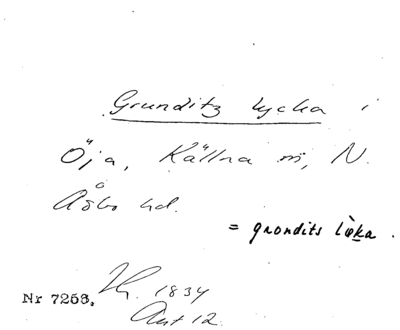 Grunditz lycka i
Öja, Källna sn, N.
Åsbo hd.
= grondits lẹka.
Nr 7258. 1834
Akt 12.